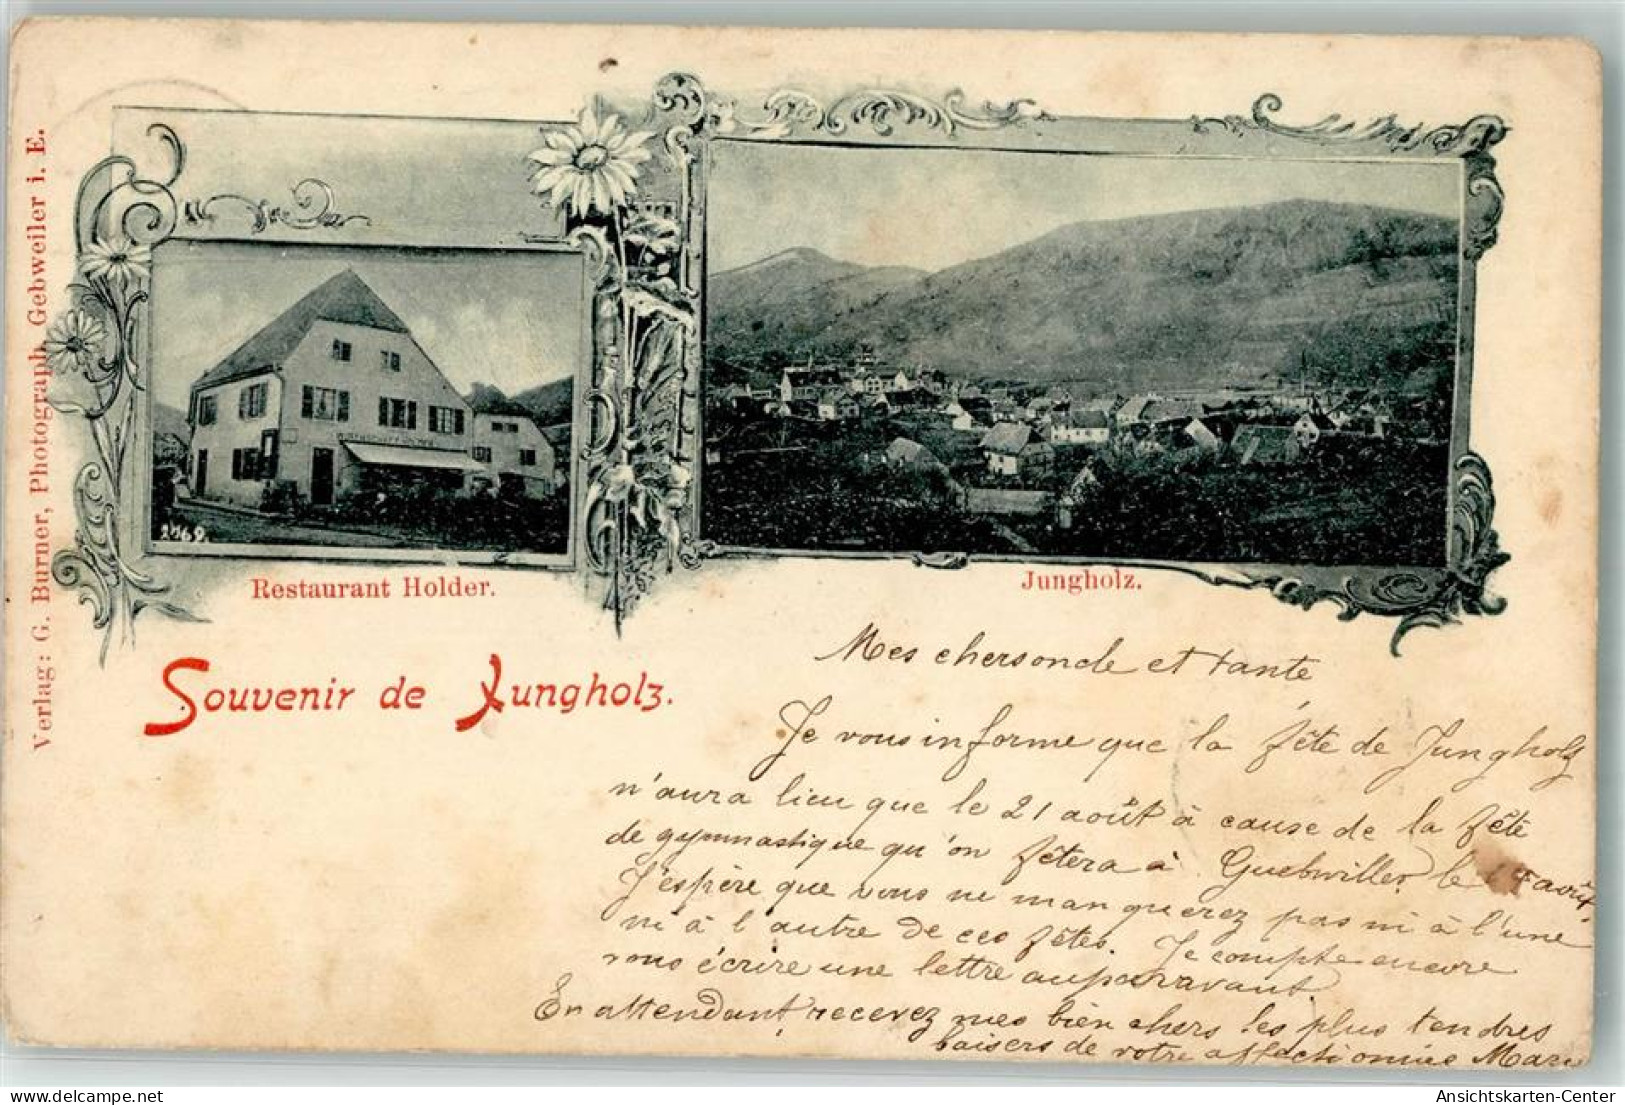 Verlag: G. Burner, Photograph, Gebweiler i. E.
2769.
Restaurant Holder.
Jungholz.
Souvenir de Jungholz.
Mes chers oncle et tante
Je vous informe que la fête de Jungholz
n'aura lieu que le 21 août à cause de la fête
de gymnastique qu'on fêtera à Guebwiller le 14 août.
J'espère que vous ne manquerez pas ni à l'une
ni à l'autre de ces fêtes. Je compte encore
vous écrire une lettre auparavant
En attendant, recevez mes bien chers les plus tendres
baisers de votre affectionnée Marie
Ansichtskarten-Center